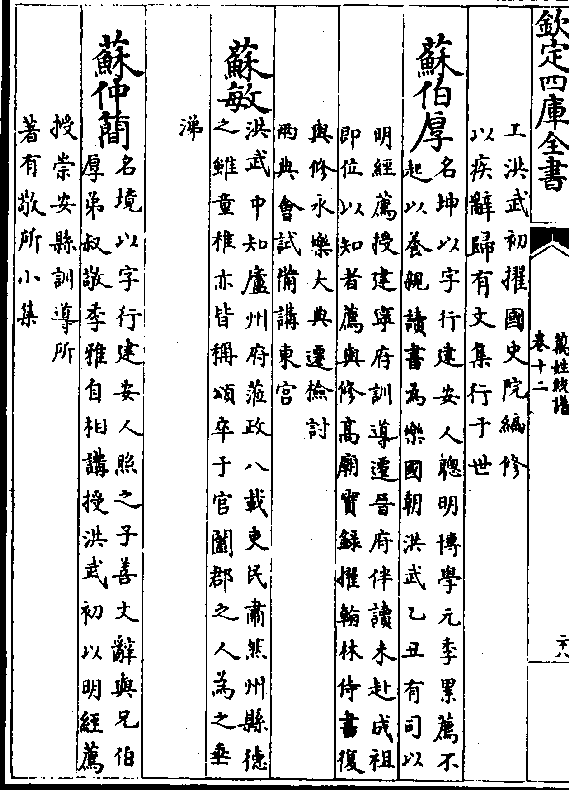 欽定四庫全書
萬姓統譜
卷十二
二十八
工洪武初擢國史院編修
以疾辭歸有文集行于世
蘇伯厚
名坤以字行建安人聰明博學元季累薦不
起以養親讀書為樂國朝洪武乙丑有司以
明經薦授建寧府訓導遷晉府伴讀未赴成祖
即位以知者薦與修高廟實錄擢翰林侍書復
與修永樂大典遷檢討
兩典會試備講東宮
蘇敏
洪武中知廬州府蒞政八載吏民肅然州縣德
之雖童稚亦皆稱頌卒于官闔郡之人為之垂
涕
蘇仲簡
名境以字行建安人照之子善文辭與兄伯
厚弟叔敬季雅自相講授洪武初以明經薦
授崇安縣訓導所
著有敬所小集